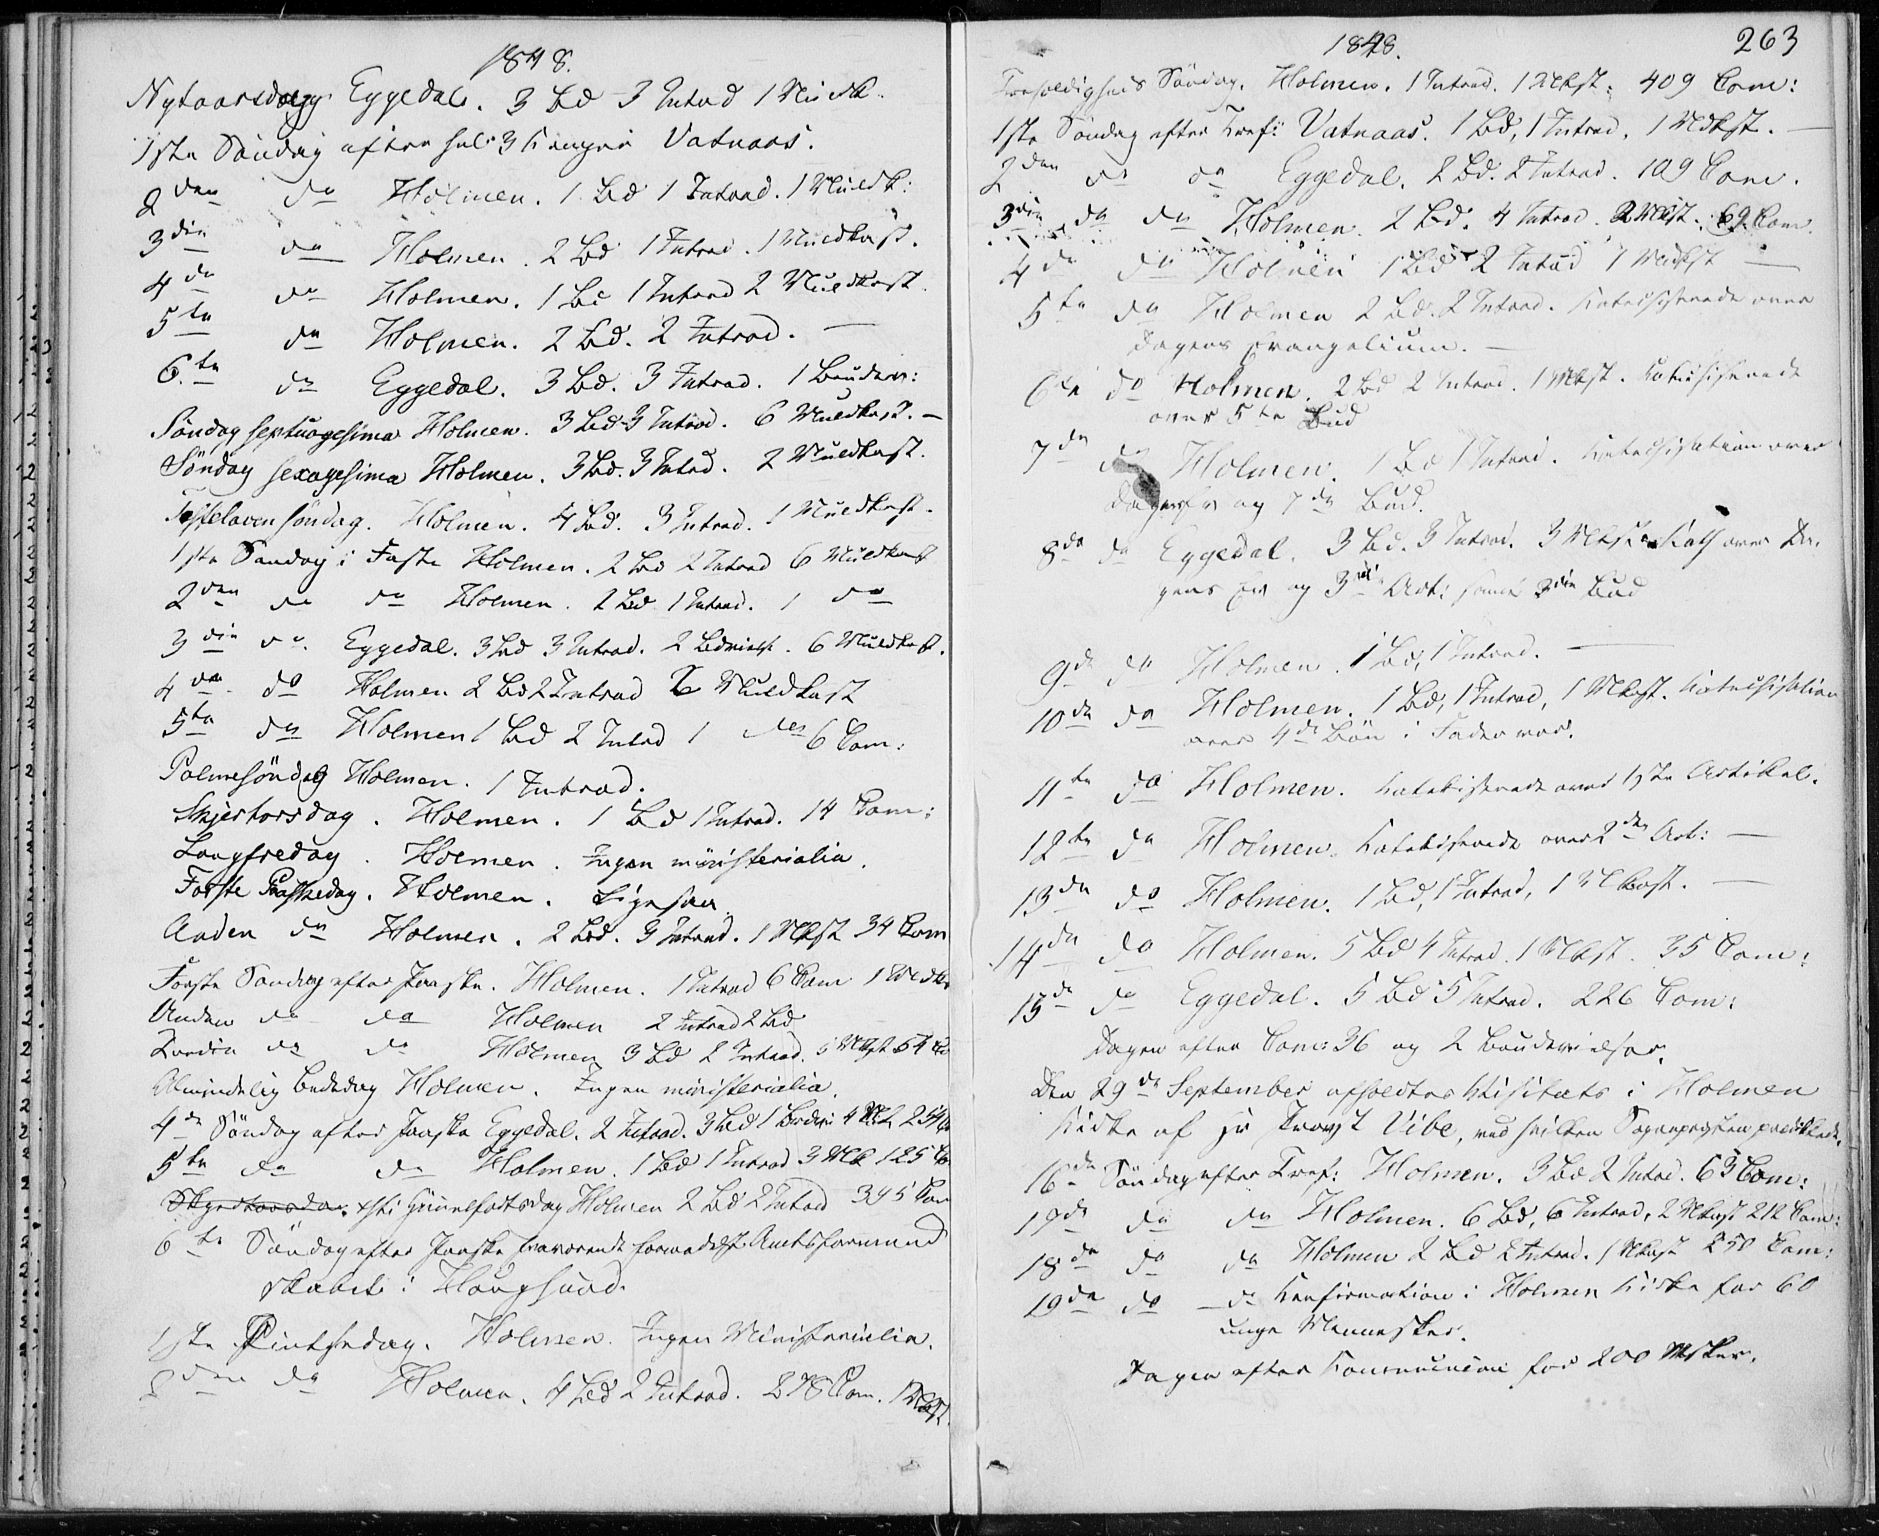 1848.
Nytaarsdag Eggedal. 3 Bd 3 Introd 1 Muldk.
1ste Søndag efter hel: 3 Konger Vatnaas.
2den do Holmen. 1 Bd 1 Introd. 1 Muldk:
3die do Holmen. 2 Bd 1 Introd. 1 Muldkast.
4de do Holmen. 1 Bd 1 Introd 2 Muldkast.
5te do Holmen. 2 Bd. 2 Introd. —
6te do Eggedal. 3 Bd. 3 Introd. 1 Brudevi:
Søndag septuagesima Holmen. 3 Bd 3 Introd. 6 Muldkast. —
Søndag sexagesima Holmen. 3 Bd. 3 Introd. 2 Muldkast.
Fastelavensøndag. Holmen. 4 Bd. 3 Introd. 1 Muldkast.
1ste Søndag i Faste Holmen. 2 Bd 2 Introd 6 Muldkast
2den do do Holmen. 2 Bd 1 Introd. 1 do
3die do. Eggedal. 3 Bd 3 Introd. 2 6 Muldkast.
4de do Holmen 2 Bd 2 Introd Muldkast
5te do Holmen 1 Bd 2 Introd 1 do 6 Com:
Palmesøndag Holmen. 1 Introd.
Skjertorsdag. Holmen. 1 Bd 1 Introd. 14 Com:
Langfredag. Holmen. Ingen ministerialia.
Første Paaskedag. Holmen. Ligesaa
Anden do Holmen. 2 Bd. 3 Introd. 1 Mkst 34 Com
Første Søndag efter Paaske. Holmen. 1 Introd 6 Com 1 Mldk
Anden do do Holmen 2 Introd 2 Bd
Tredie do do Holmen 3 Bd 2 Introd. 54 Co
Almindelig Bededag Holmen. Ingen ministerialia.
4de Søndag efter Paaske Eggedal. 2 Introd. 3 Bd 1 Brdvi: 4 254
5te do do Holmen. 1 Bd 1 Introd 3 Mk 125 Co
Chsti Himmelfartsdag Holmen 2 Bd 2 Introd 395 Com
6te Søndag efter Paaske fraværende formedelst Amtsformand
skabet i Hougsund.
1ste Pintsedag. Holmen. Ingen Ministerialia.
2den do Holmen. 4 Bd 2 Introd. 278 Com. 1 Mkst.
1848. 263
Trefoldigheds Søndag. Holmen. 1 Introd. 1 Mkst: 409 Com:
1ste Søndag efter Tref: Vatnaas. 1 Bd, 1 Introd. 1 Mdkst. —
2den do do Eggedal. 2 Bd. 2 Introd. 109 Com.
3die do do Holmen. 2 Bd. 4 Introd. 2 Mkst. 69 Com.
4de do Holmen 1 Bd 2 Introd 1 Mdkst —
5te do Holmen 2 Bd. 2 Introd. Katechiserede over
Dagens Evangelium. —
6te do Holmen. 2 Bd 2 Introd. 1 Mkst. Katechiserede
over 5te Bud
7de do Holmen. 1 Bd 1 Introd. Katechisation over
Dagens Ev og 7de Bud.
8de do Eggedal. 3 Bd. 3 Introd. 3 Mkst. Kath over Da-
gens Ev og 3die Art: samt 3die Bud
9de do Holmen. 1 Bd, 1 Introd. —
10de do Holmen. 1 Bd, 1 Introd, 1 Mkst. Katechisation
over 4de Bøn i Fader vor.
11te do Holmen. Katekiserede over 1ste Artikel.
12te do Holmen. Katekiserede over 2den Art: —
13de do Holmen. 1 Bd, 1 Introd, 1 Mkast. —
14de do Holmen. 5 Bd 4 Introd. 1 Mkst. 35 Com:
15de do Eggedal. 5 Bd 5 Introd. 226 Com:
Dagen efter Com: 36 og 2 Brudevielser.
Den 29de September afholdtes Visitats i Holmen
Kirke af Hr Provst Vibe, ved hvilken Sognepresten prædikede.
16de Søndag efter Tref: Holmen. 3 Bd 2 Introd. 63 Com:
17de do do Holmen. 6 Bd, 6 Introd, 2 Mkast 212 Com:
18de do do Holmen 2 Bd 2 Introd. 1 Mkast 250 Com:
19de do do Konfirmation i Holmen Kirke for 60
unge Mennesker.
Dagen efter Kommunion for 200 Msker.